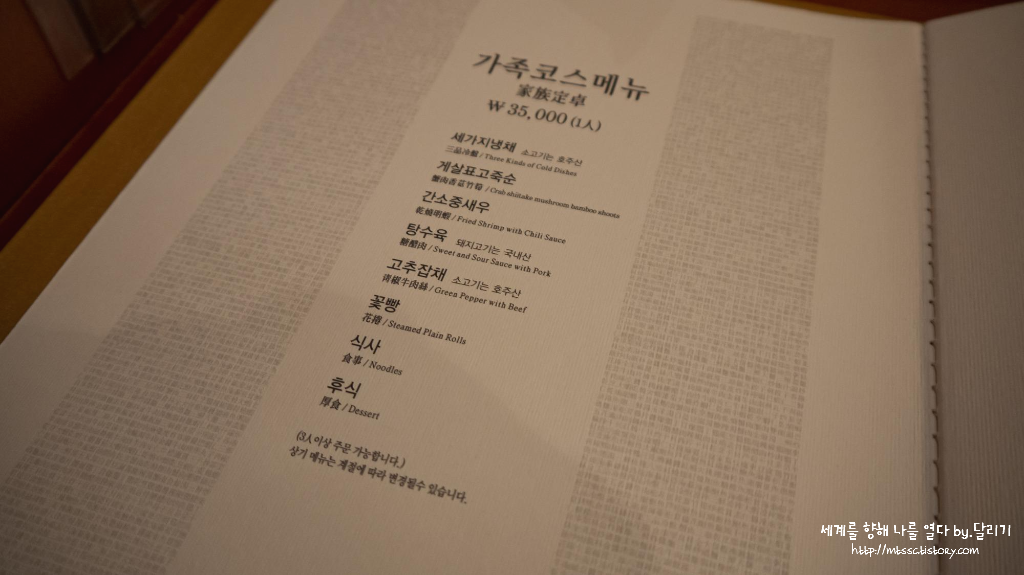 가족코스메뉴
家族定卓
₩ 35,000 (1人)
세가지냉채 소고기는 호주산
三品冷盤 / Three Kinds of Cold Dishes
게살표고죽순
蟹肉香菇竹筍 / Crab shiitake mushroom bamboo shoots
간소중새우
乾燒明蝦 / Fried Shrimp with Chili Sauce
탕수육 돼지고기는 국내산
糖醋肉 / Sweet and Sour Sauce with Pork
고추잡채 소고기는 호주산
靑椒牛肉絲 / Green Pepper with Beef
꽃빵
花捲 / Steamed Plain Rolls
식사
食事 / Noodles
후식
厚食 / Dessert
(3人이상 주문 가능합니다.)
상기 메뉴는 계절에 따라 변경될수 있습니다.
세계를 향해 나를 열다 by.달리기
http://mbssc.tistory.com